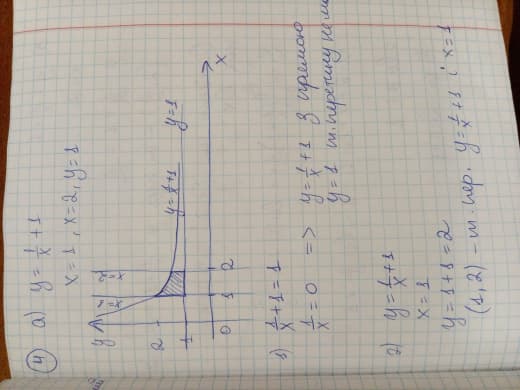 4 а) y = 1/x + 1
x = 1 , x = 2, y = 1
y
x = 1
x = 2
2
y = 1/x + 1
y = 1
1
0
1
2
x
1) 1/x + 1 = 1
1/x = 0 => y = 1/x + 1 з прямою
y = 1 т. перетину нема
2) y = 1/x + 1
x = 1
y = 1 + 1 = 2
(1, 2) – т. пер. y = 1/x + 1 і x = 1